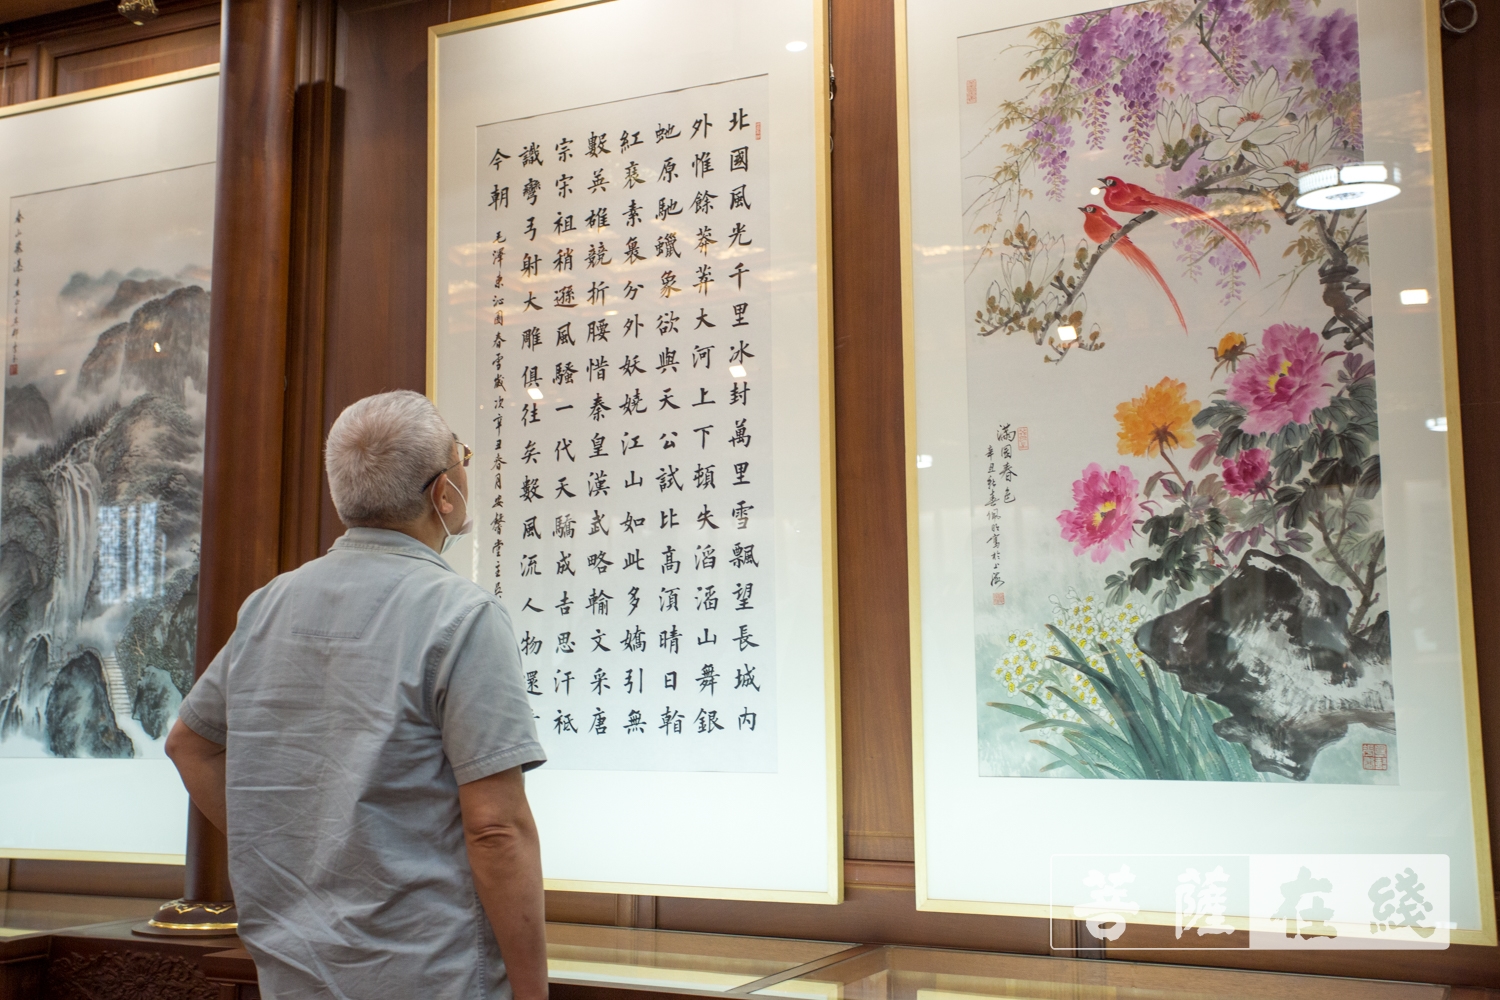 北國風光千里冰封萬里雪飄望長城內
外惟餘莽莽大河上下頓失滔滔山舞銀
蛇原馳蠟象欲與天公試比高須晴日看
紅裹素裹分外妖嬈江山如此多嬌引無
數英雄競折腰惜秦皇漢武略輸文采唐
宗宋祖稍遜風騷一代天驕成吉思汗祗
識彎弓射大雕俱往矣數風流人物還
今朝
毛澤東沁園春雪歲次辛丑春月安馨堂主吳
滿園春色
辛丑
菩薩在綫